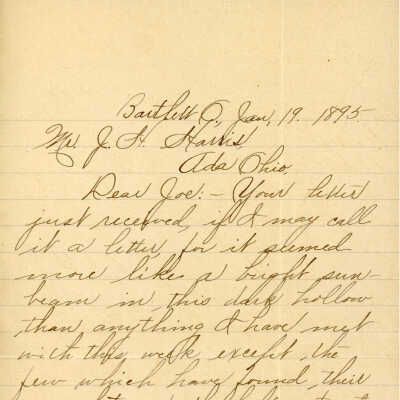 Bartlett O., Jan, 19. 1895
Mr. J. H. Harris,
Ada Ohio.
Dear Joe:- Your letter
just received, if I may call
it a letter, for it seemed
more like a bright sun-
beam in this dark hollow
than anything I have met
with this week, except, the
few which have found their